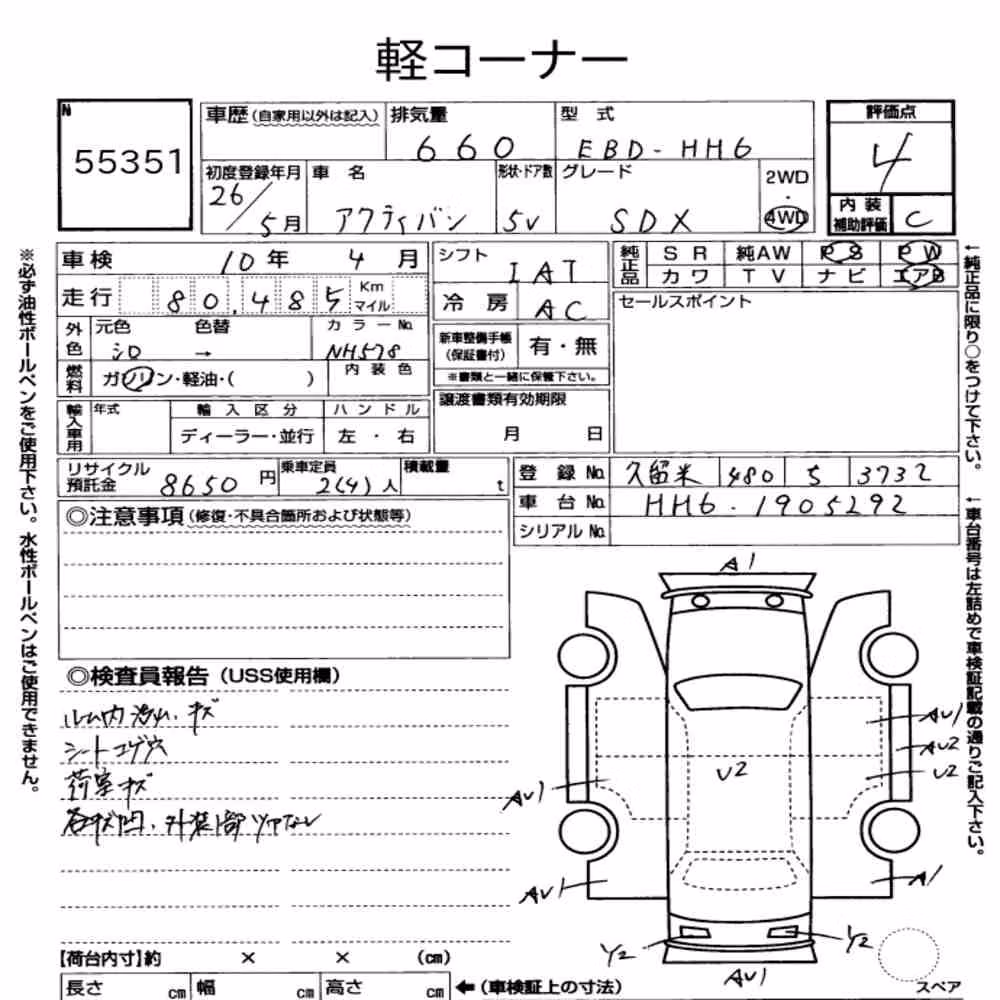 軽コーナー
N
55351
車歴 (自家用以外は記入) 排気量 型 式
660 EBD-HH6
初度登録年月 車 名 形状・ドア数 グレード 2WD・4WD
26/5月 アクティバン 5V SDX
評価点
4
内装補助評価 C
車検 10年 4月
走行 80,485 Km マイル
シフト IAT
冷 房 AC
純正品 SR 純AW PS PW
カワ TV ナビ エアB
セールスポイント
外色 元色 色替 カラーNo.
シロ → NH578
燃料 ガソリン・軽油・( ) 内装色
新車整備手帳(保証書付) 有・無
※書類と一緒に保管下さい。
輸入車用 年式 輸入区分 ハンドル
ディーラー・並行 左・右
譲渡書類有効期限
月 日
リサイクル預託金 8650円 乗車定員 2(4)人 積載量 t
登録No. 久留米 480 5 3732
車台No. HH6-1905292
シリアルNo.
◎注意事項 (修復・不具合箇所および状態等)
◎検査員報告 (USS使用欄)
ルーム内 汚れ、キズ
シートコゲ穴
荷室キズ
各キズ凹、外装部ツヤなし
A1
AU1
AU2
U2
U2
AU1
AU1
A1
Y2
Y2
AU1
スペア
【荷台内寸】約 × × (cm)
長さ cm 幅 cm 高さ cm ←(車検証上の寸法)
※必ず油性ボールペンをご使用下さい。水性ボールペンはご使用できません。
←純正品に限り○をつけて下さい。
←車台番号は左詰めで車検証記載の通りご記入下さい。